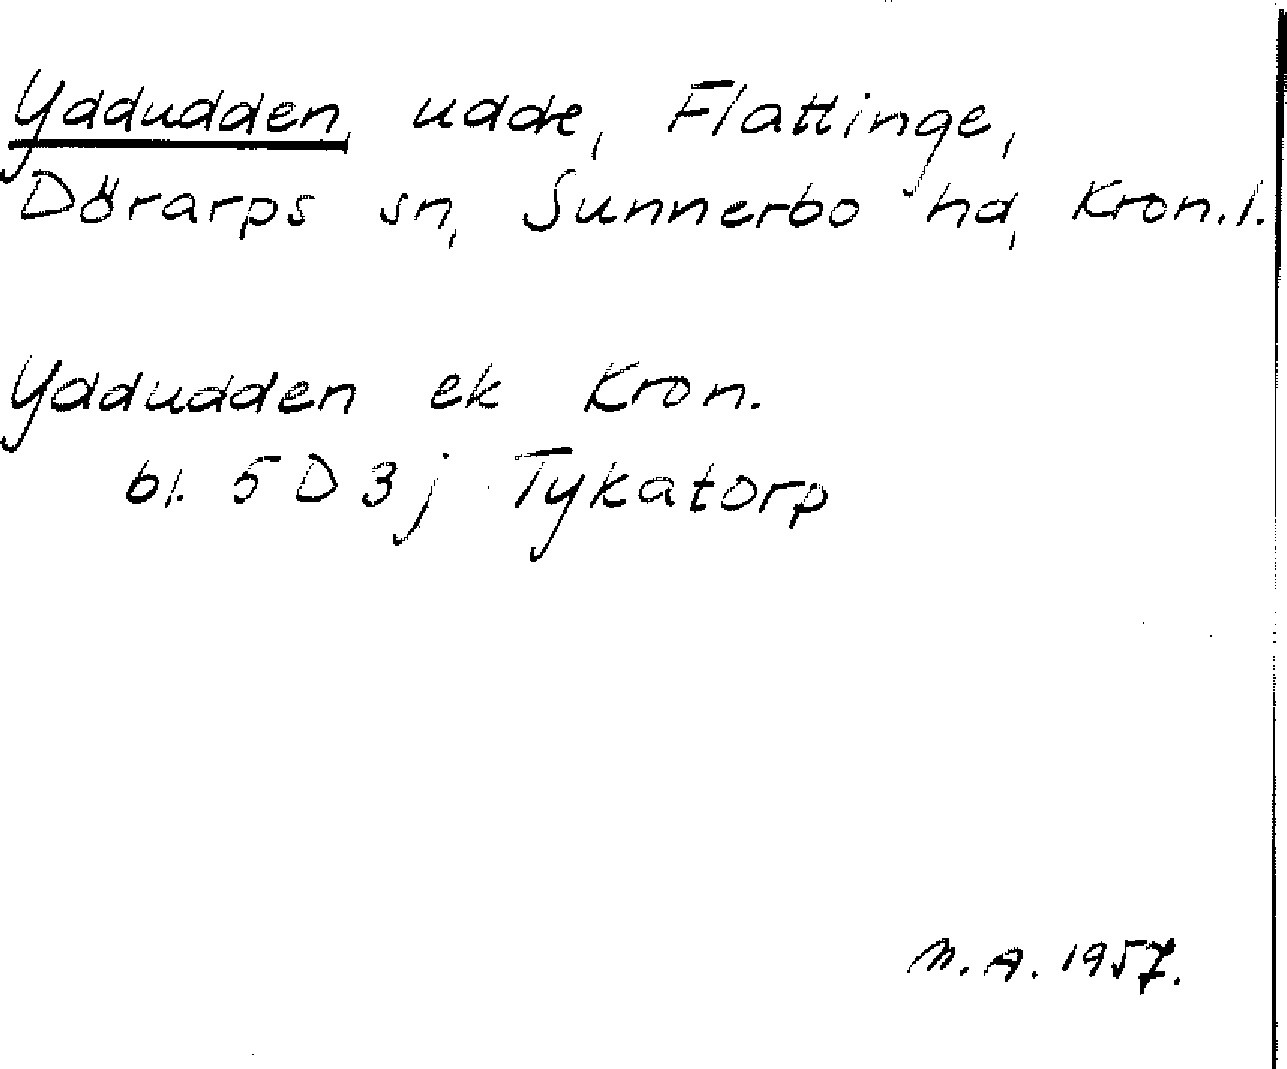 Yddudden, udde, Flattinge,
Dörarps sn, Sunnerbo hd, Kron.l.
Yddudden ek Kron.
bl. 5 D 3 j Tykatorp
M.A. 1957.